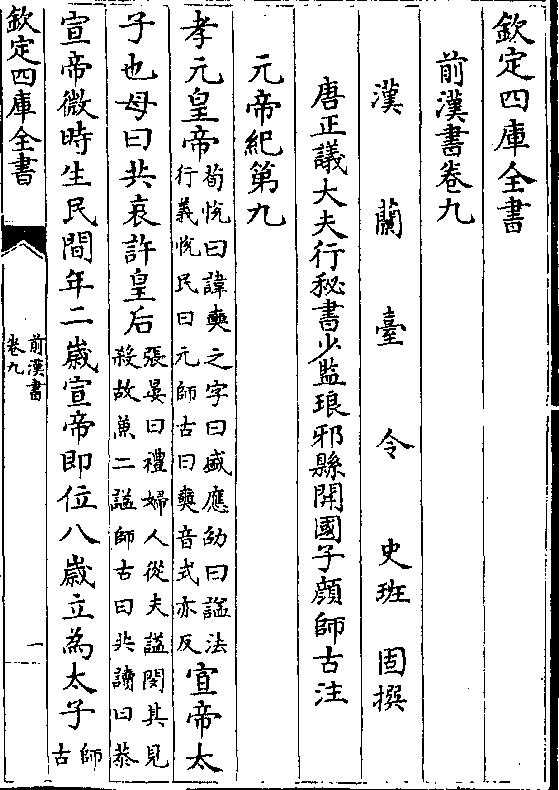 欽定四庫全書
前漢書卷九
漢蘭臺令史班固撰
唐正議大夫行秘書少監琅邪縣開國子顔師古注
元帝紀第九
孝元皇帝荀恱曰諱奭之字曰盛應劭曰諡法
行義恱民曰元師古曰奭音式亦反宣帝太
子也母曰共哀許皇后張晏曰禮婦人從夫諡閔其見
殺故兼二諡師古曰共讀曰恭
宣帝微時生民間年二歲宣帝即位八歲立為太子師
古
欽定四庫全書
前漢書
卷九
一